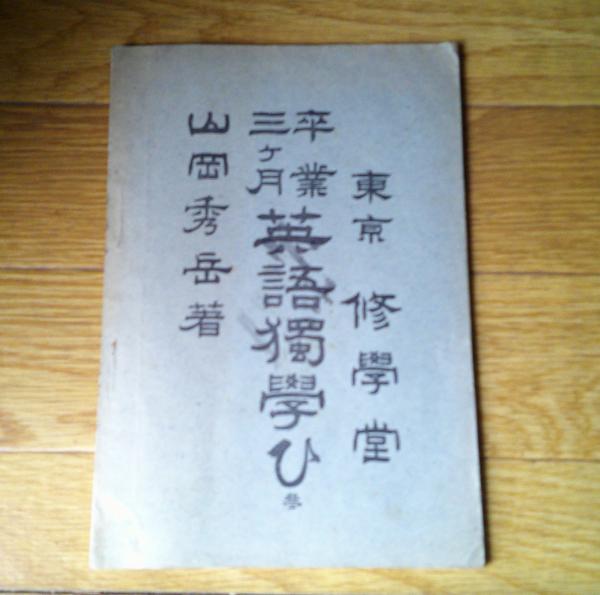 東京 修學堂
卒業
三ヶ月
英語獨學ひ
山岡秀岳著